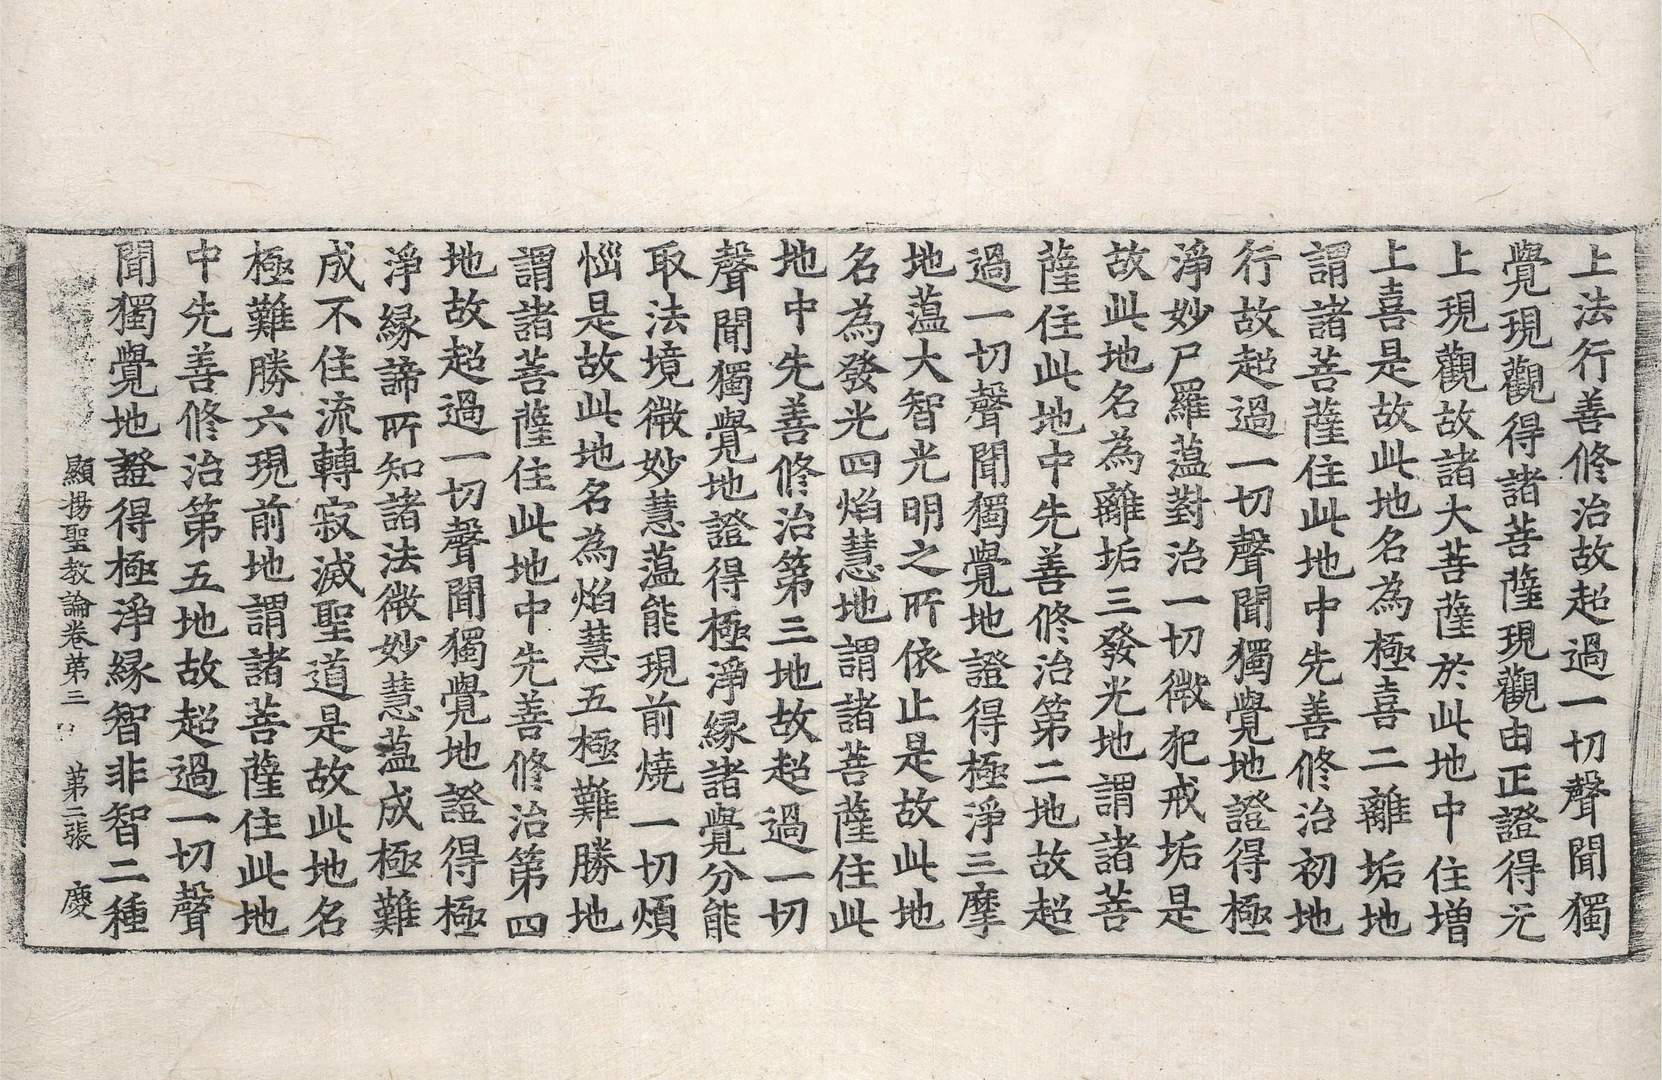 上法行善修治故超過一切聲聞獨
覺現觀得諸菩薩現觀由正證得无
上現觀故諸大菩薩於此地中住增
上喜是故此地名為極喜二離垢地
謂諸菩薩住此地中先善修治初地
行故超過一切聲聞獨覺地證得極
淨妙尸羅蕰對治一切微犯戒垢是
故此地名為離垢三發光地謂諸菩
薩住此地中先善修治第二地故超
過一切聲聞獨覺地證得極淨三摩
地蕰大智光明之所依止是故此地
名為發光四焰慧地謂諸菩薩住此
地中先善修治第三地故超過一切
聲聞獨覺地證得極淨緣諸覺分能
取法境微妙慧蕰能現前燒一切煩
惱是故此地名為焰慧五極難勝地
謂諸菩薩住此地中先善修治第四
地故超過一切聲聞獨覺地證得極
淨緣諦所知諸法微妙慧蕰成極難
成不住流轉寂滅聖道是故此地名
極難勝六現前地謂諸菩薩住此地
中先善修治第五地故超過一切聲
聞獨覺地證得極淨緣智非智二種
顯揚聖教論卷第三 第二張 慶